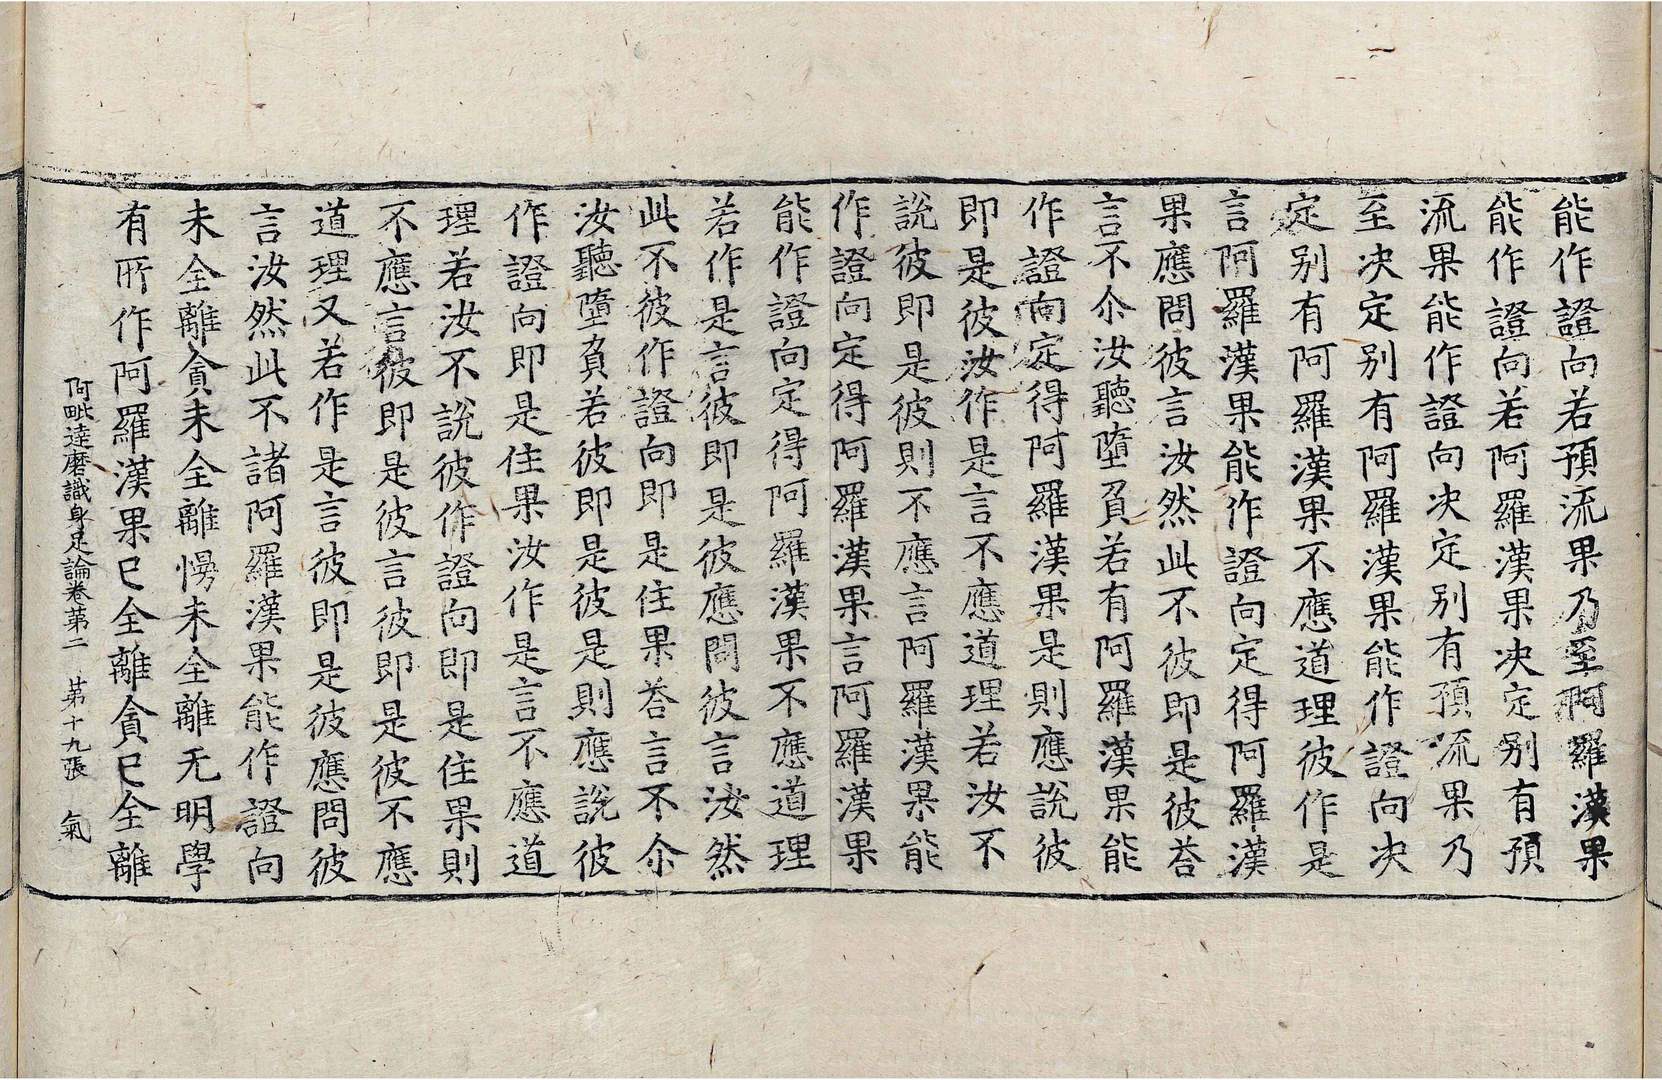 能作證向若預流果乃至阿羅漢果
能作證向若阿羅漢果决定别有預
流果能作證向决定别有預流果乃
至决定别有阿羅漢果能作證向决
定别有阿羅漢果不應道理彼作是
言阿羅漢果能作證向定得阿羅漢
果應問彼言汝然此不彼即是彼荅
言不尒汝聽墮負若有阿羅漢果能
作證向定得阿羅漢果是則應說彼
即是彼汝作是言不應道理若汝不
說彼即是彼則不應言阿羅漢果能
作證向定得阿羅漢果言阿羅漢果
能作證向定得阿羅漢果不應道理
若作是言彼即是彼應問彼言汝然
此不彼作證向即是住果荅言不尒
汝聽墮負若彼即是彼是則應說彼
作證向即是住果汝作是言不應道
理若汝不說彼作證向即是住果則
不應言彼即是彼言彼即是彼不應
道理又若作是言彼即是彼應問彼
言汝然此不諸阿羅漢果能作證向
未全離貪未全離慢未全離无明學
有所作阿羅漢果已全離貪已全離
阿毗達磨識身足論卷第二　第十九張　氣